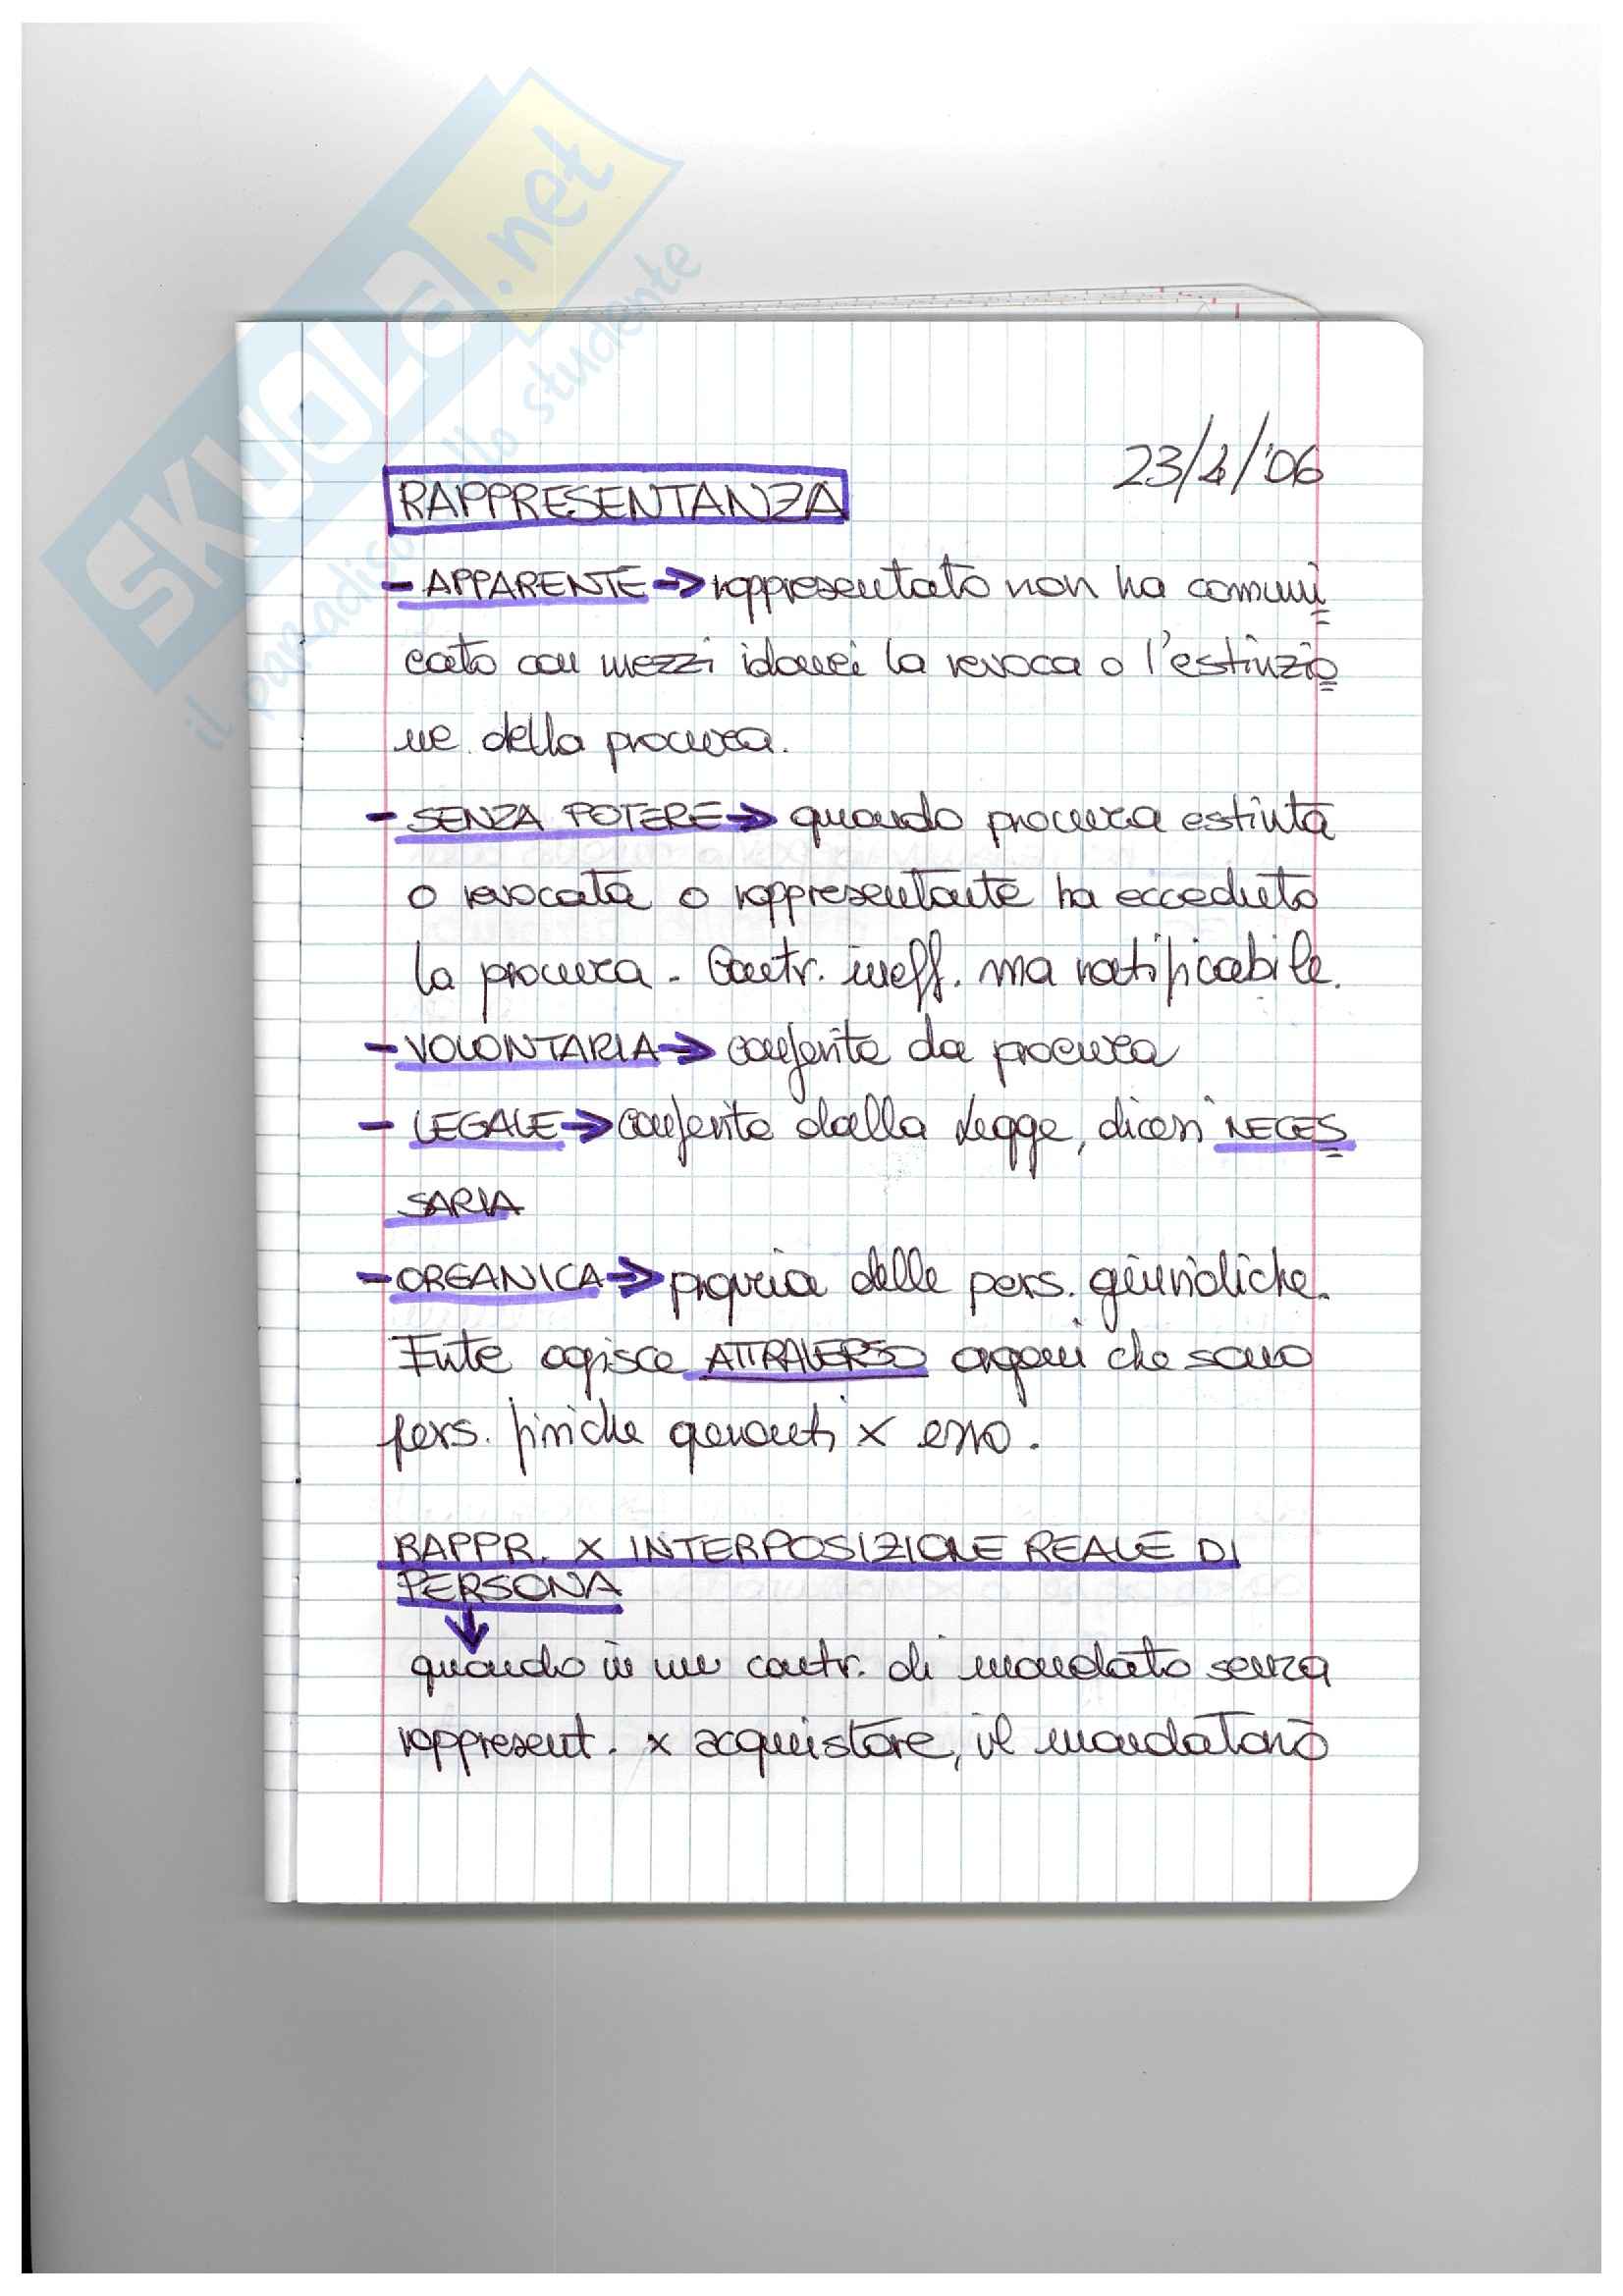 SKUOLA.net
il paradiso dello studente
23/4/'06
RAPPRESENTANZA
- APPARENTE → rappresentato non ha comuni
cato con mezzi idonei la revoca o l'estinzio
ne della procura.
- SENZA POTERE → quando procura estinta
o revocata o rappresentante ha ecceduto
la procura. Contr. ineff. ma ratificabile.
- VOLONTARIA → conferita da procura
- LEGALE → conferita dalla legge, dicesi NECES
SARIA
- ORGANICA → propria delle pers. giuridiche.
Ente agisce ATTRAVERSO organi che sono
pers. fisiche garanti x esso.
RAPPR. X INTERPOSIZIONE REALE DI
PERSONA
↓
quando in un contr. di mandato senza
rappresent. x acquistare, il mandatario